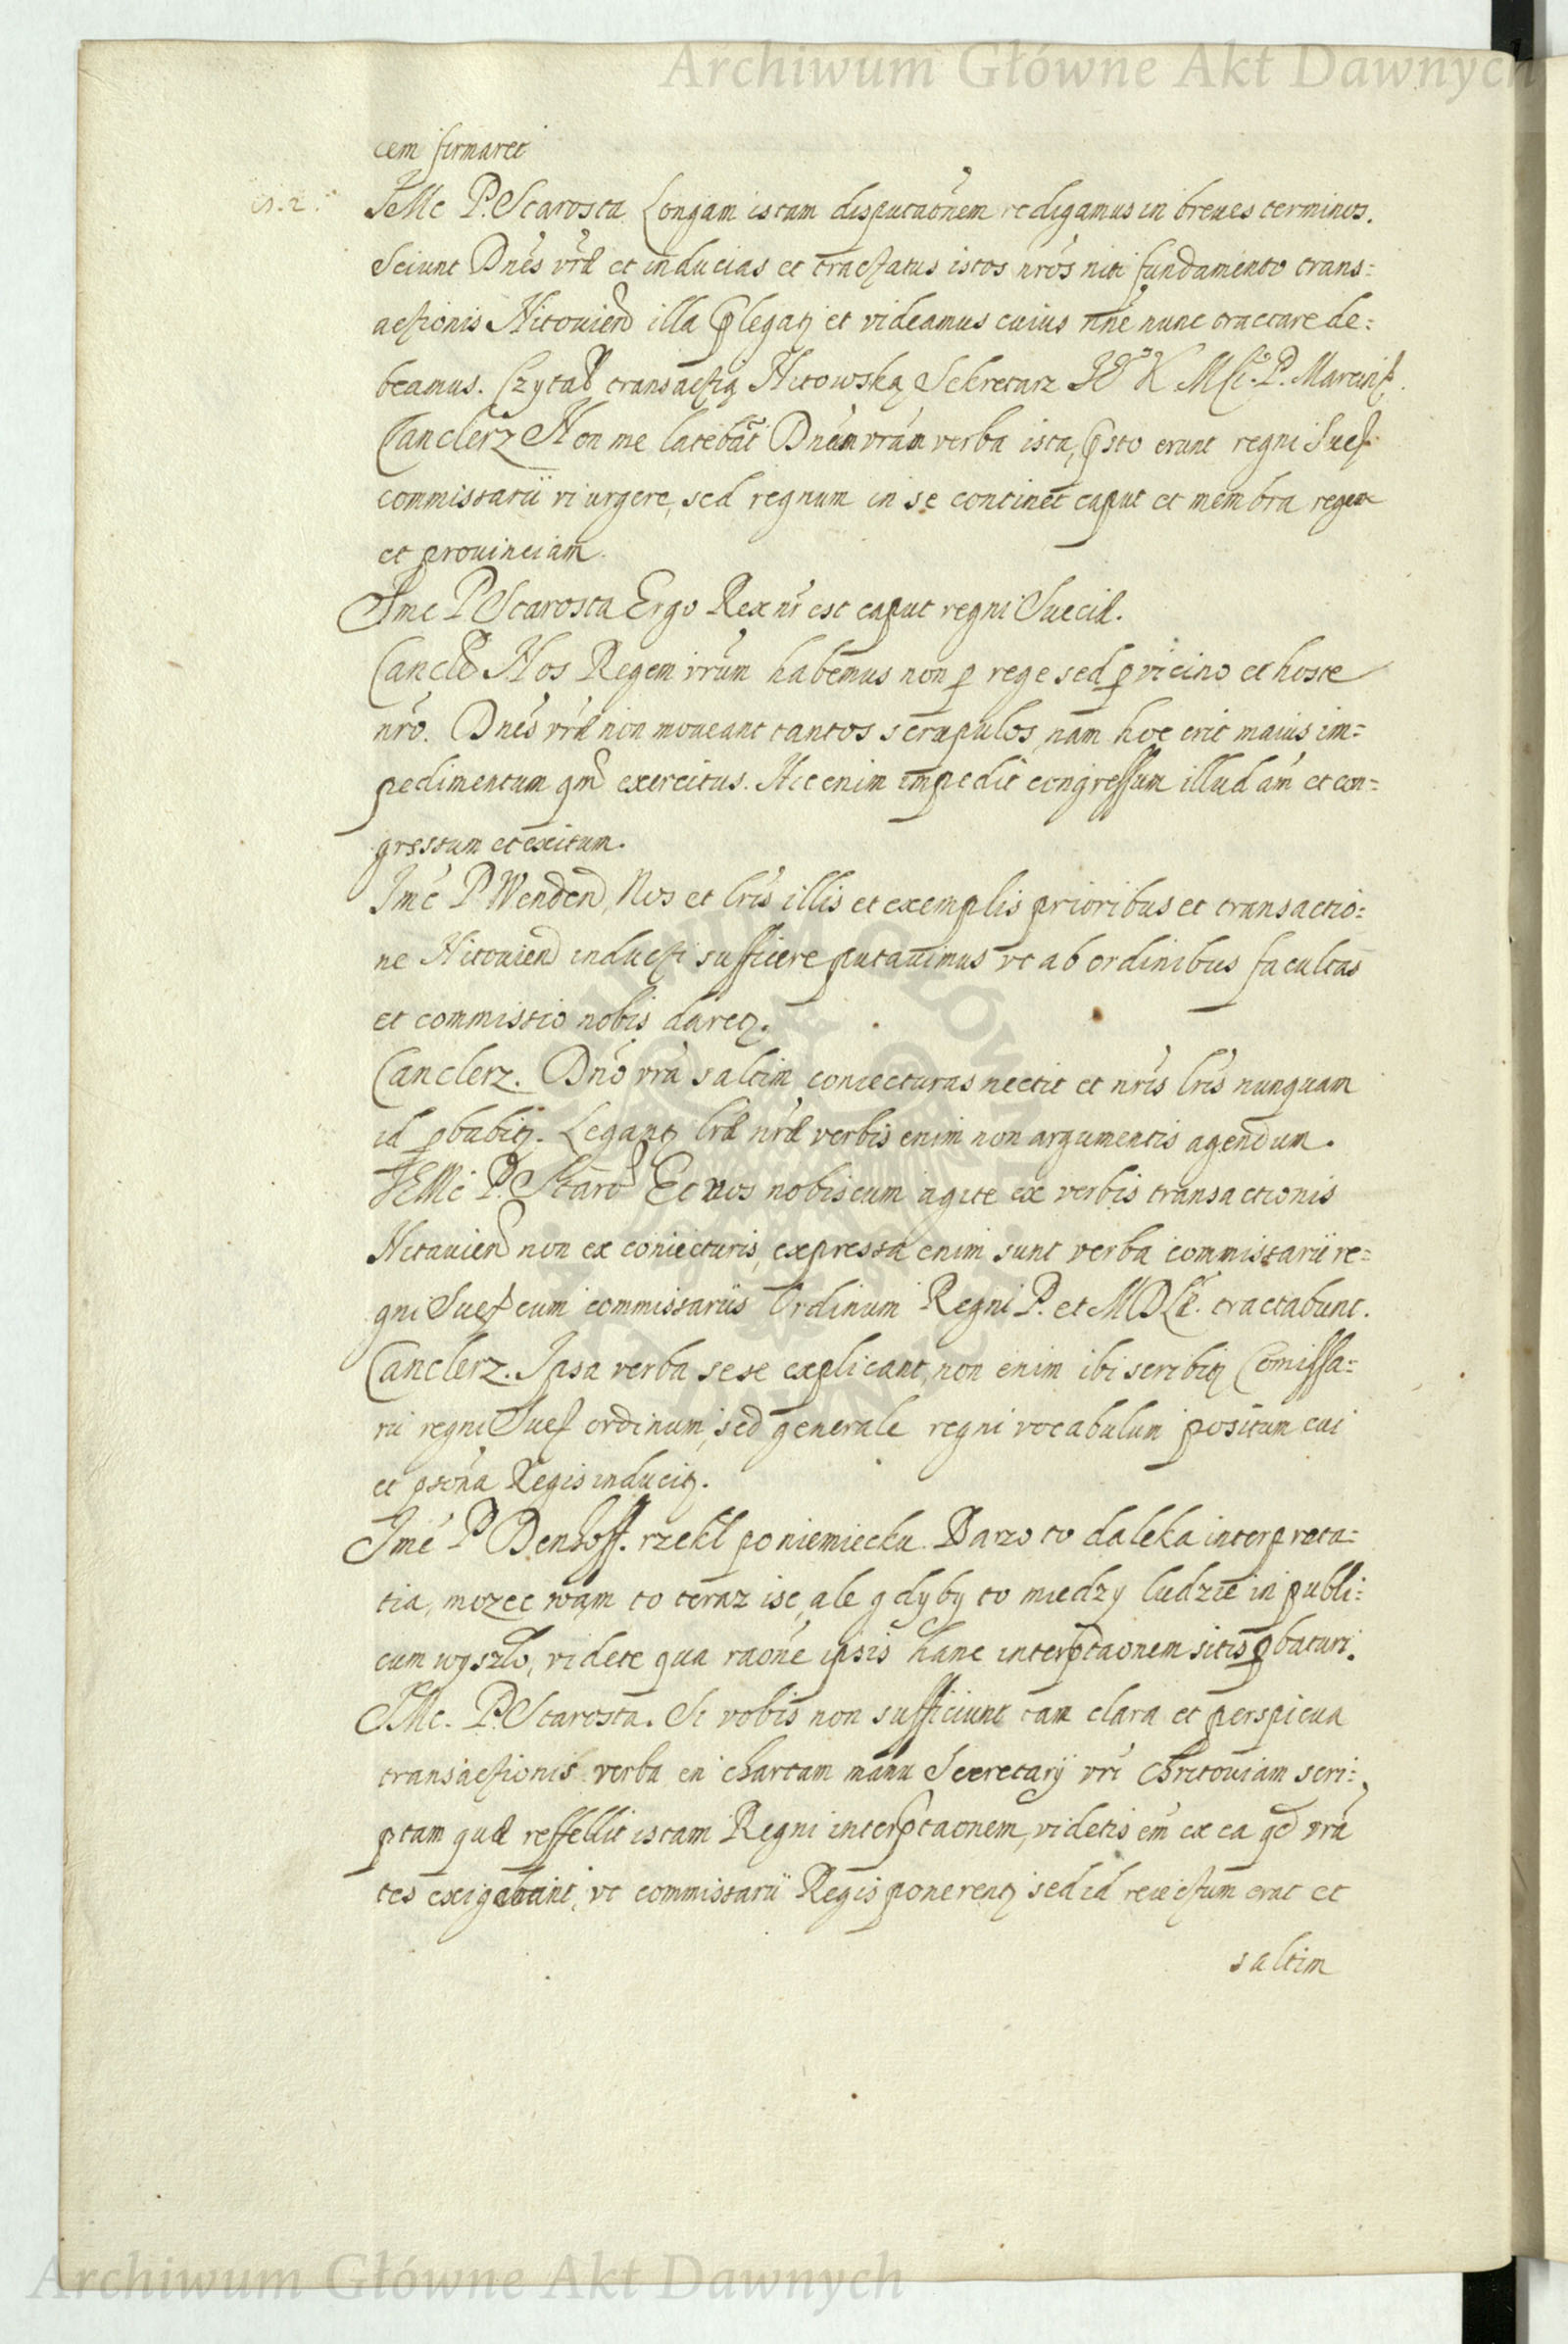 Archiwum Główne Akt Dawnych
cem firmaret
JeMc P. Starosta Longam istam disputaõnem redigamus in breues terminos.
Sciunt Dnẽs vrã et inducias et tractatus istos nrõs niti fundamento trans=
actionis Mitouien illa plegat et videamus cuius nñe nunc tractare de=
beamus. Czytał transactią Mitowską Sekretarz JKMści P. Marcinf.
Canclerz Non me latebãt Dnẽm vrãm verba ista, psto erunt regni Suef
commissarii vi urgere, sed regnum in se continet caput et membra regem
et prouinciam.
Jmc P Starosta Ergo Rex nr est caput regni Sueciæ.
Cancl Nos Regem vrũm habemus non p rege sed p vicino et hoste
nrõ. Dnẽs vræ non moueant tantos scrupulos, nam hoc erit maius im=
pedimentum qm exercitus. Hic enim impedit congressum illud am et con=
gressum et exitum.
Jmc P Wenden, Nos et lris illis et exemplis prioribus et transactio=
ne Mitouien inducti sufficere putauimus vt ab ordinibus facultas
et commissio nobis daret.
Canclerz. Dnõ vrã saltim coniecturas nectit et nris lris nunquam
id pbabit. Legant lræ nræ verbis enim non argumentis agendum.
JEMc P. Staro Et nos nobiscum agite ex verbis transactionis
Mitauien non ex coniecturis, expressa enim sunt verba commissarii re=
gni Suef cum commissariis Ordinum Regni P. et MDL. tractabunt.
Canclerz. Ipsa verba sese explicant, non enim ibi scribit Comissa=
rii regni Suef ordinum, sed generale regni vocabulum positum cui
et psona Regis inducit.
Jmc P Denhoff. rzekł po niemiecku. Barzo to daleka interpreta=
tia, mozec wam to teraz isc, ale gdyby to miedzy ludzie in publi=
cum wyszło, videte qua raõne ipsis hanc interptaonem sitis pbaturi.
JMc. P. Starosta. Si vobis non sufficiunt tam clara et perspicua
transactionis verba en chartam manu Secretarij vri Mitouiam scri=
ptam quæ reffellit istam Regni interptaonem, videtis em ex ea qd vrã
tes exigebant, vt commissarii Regis ponerent sed id reiectum erat et
saltim
Archiwum Główne Akt Dawnych